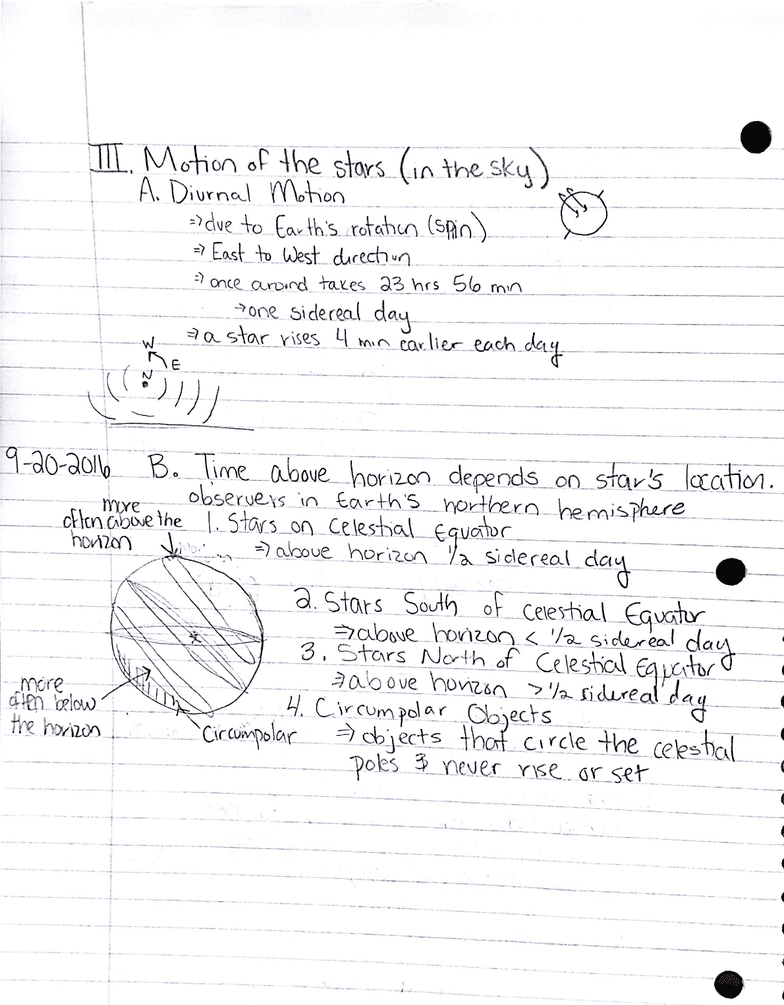 III. Motion of the stars (in the sky)
A. Diurnal Motion
⇒ due to Earth's rotation (spin)
⇒ East to West direction
⇒ once around takes 23 hrs 56 min
→ one sidereal day
⇒ a star rises 4 min earlier each day
W
E
N
9-20-2016 B. Time above horizon depends on star's location.
observers in Earth's northern hemisphere
more
often above the
horizon
1. Stars on Celestial Equator
⇒ above horizon 1/2 sidereal day
2. Stars South of Celestial Equator
⇒ above horizon < 1/2 sidereal day
3. Stars North of Celestial Equator
⇒ above horizon > 1/2 sidereal day
more
often below
the horizon
Circumpolar
4. Circumpolar Objects
⇒ objects that circle the celestial
poles & never rise or set